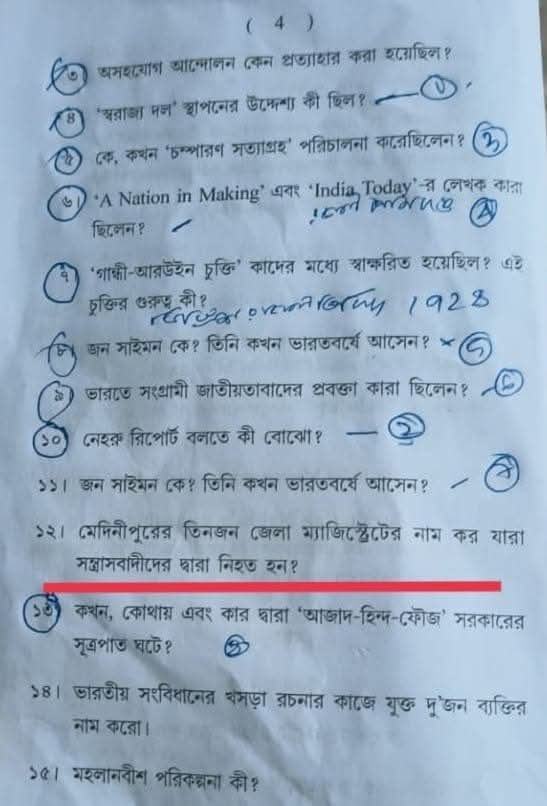 ( 4 )
৩। অসহযোগ আন্দোলন কেন প্রত্যাহার করা হয়েছিল?
৪ 'স্বরাজ্য দল' স্থাপনের উদ্দেশ্য কী ছিল?
৫ কে, কখন 'চম্পারণ সত্যাগ্রহ' পরিচালনা করেছিলেন?
৬। 'A Nation in Making' এবং 'India Today'-র লেখক কারা
ছিলেন?
৭ 'গান্ধী-আরউইন চুক্তি' কাদের মধ্যে স্বাক্ষরিত হয়েছিল? এই
চুক্তির গুরুত্ব কী?
1928
৮। জন সাইমন কে? তিনি কখন ভারতবর্ষে আসেন?
৯ ভারতে সংগ্রামী জাতীয়তাবাদের প্রবক্তা কারা ছিলেন?
১০ নেহরু রিপোর্ট বলতে কী বোঝো?
১১। জন সাইমন কে? তিনি কখন ভারতবর্ষে আসেন?
১২। মেদিনীপুরের তিনজন জেলা ম্যাজিস্ট্রেটের নাম কর যারা
সন্ত্রাসবাদীদের দ্বারা নিহত হন?
১৩ কখন, কোথায় এবং কার দ্বারা 'আজাদ-হিন্দ-ফৌজ' সরকারের
সূত্রপাত ঘটে?
১৪। ভারতীয় সংবিধানের খসড়া রচনার কাজে যুক্ত দু'জন ব্যক্তির
নাম করো।
১৫। মহলানবীশ পরিকল্পনা কী?